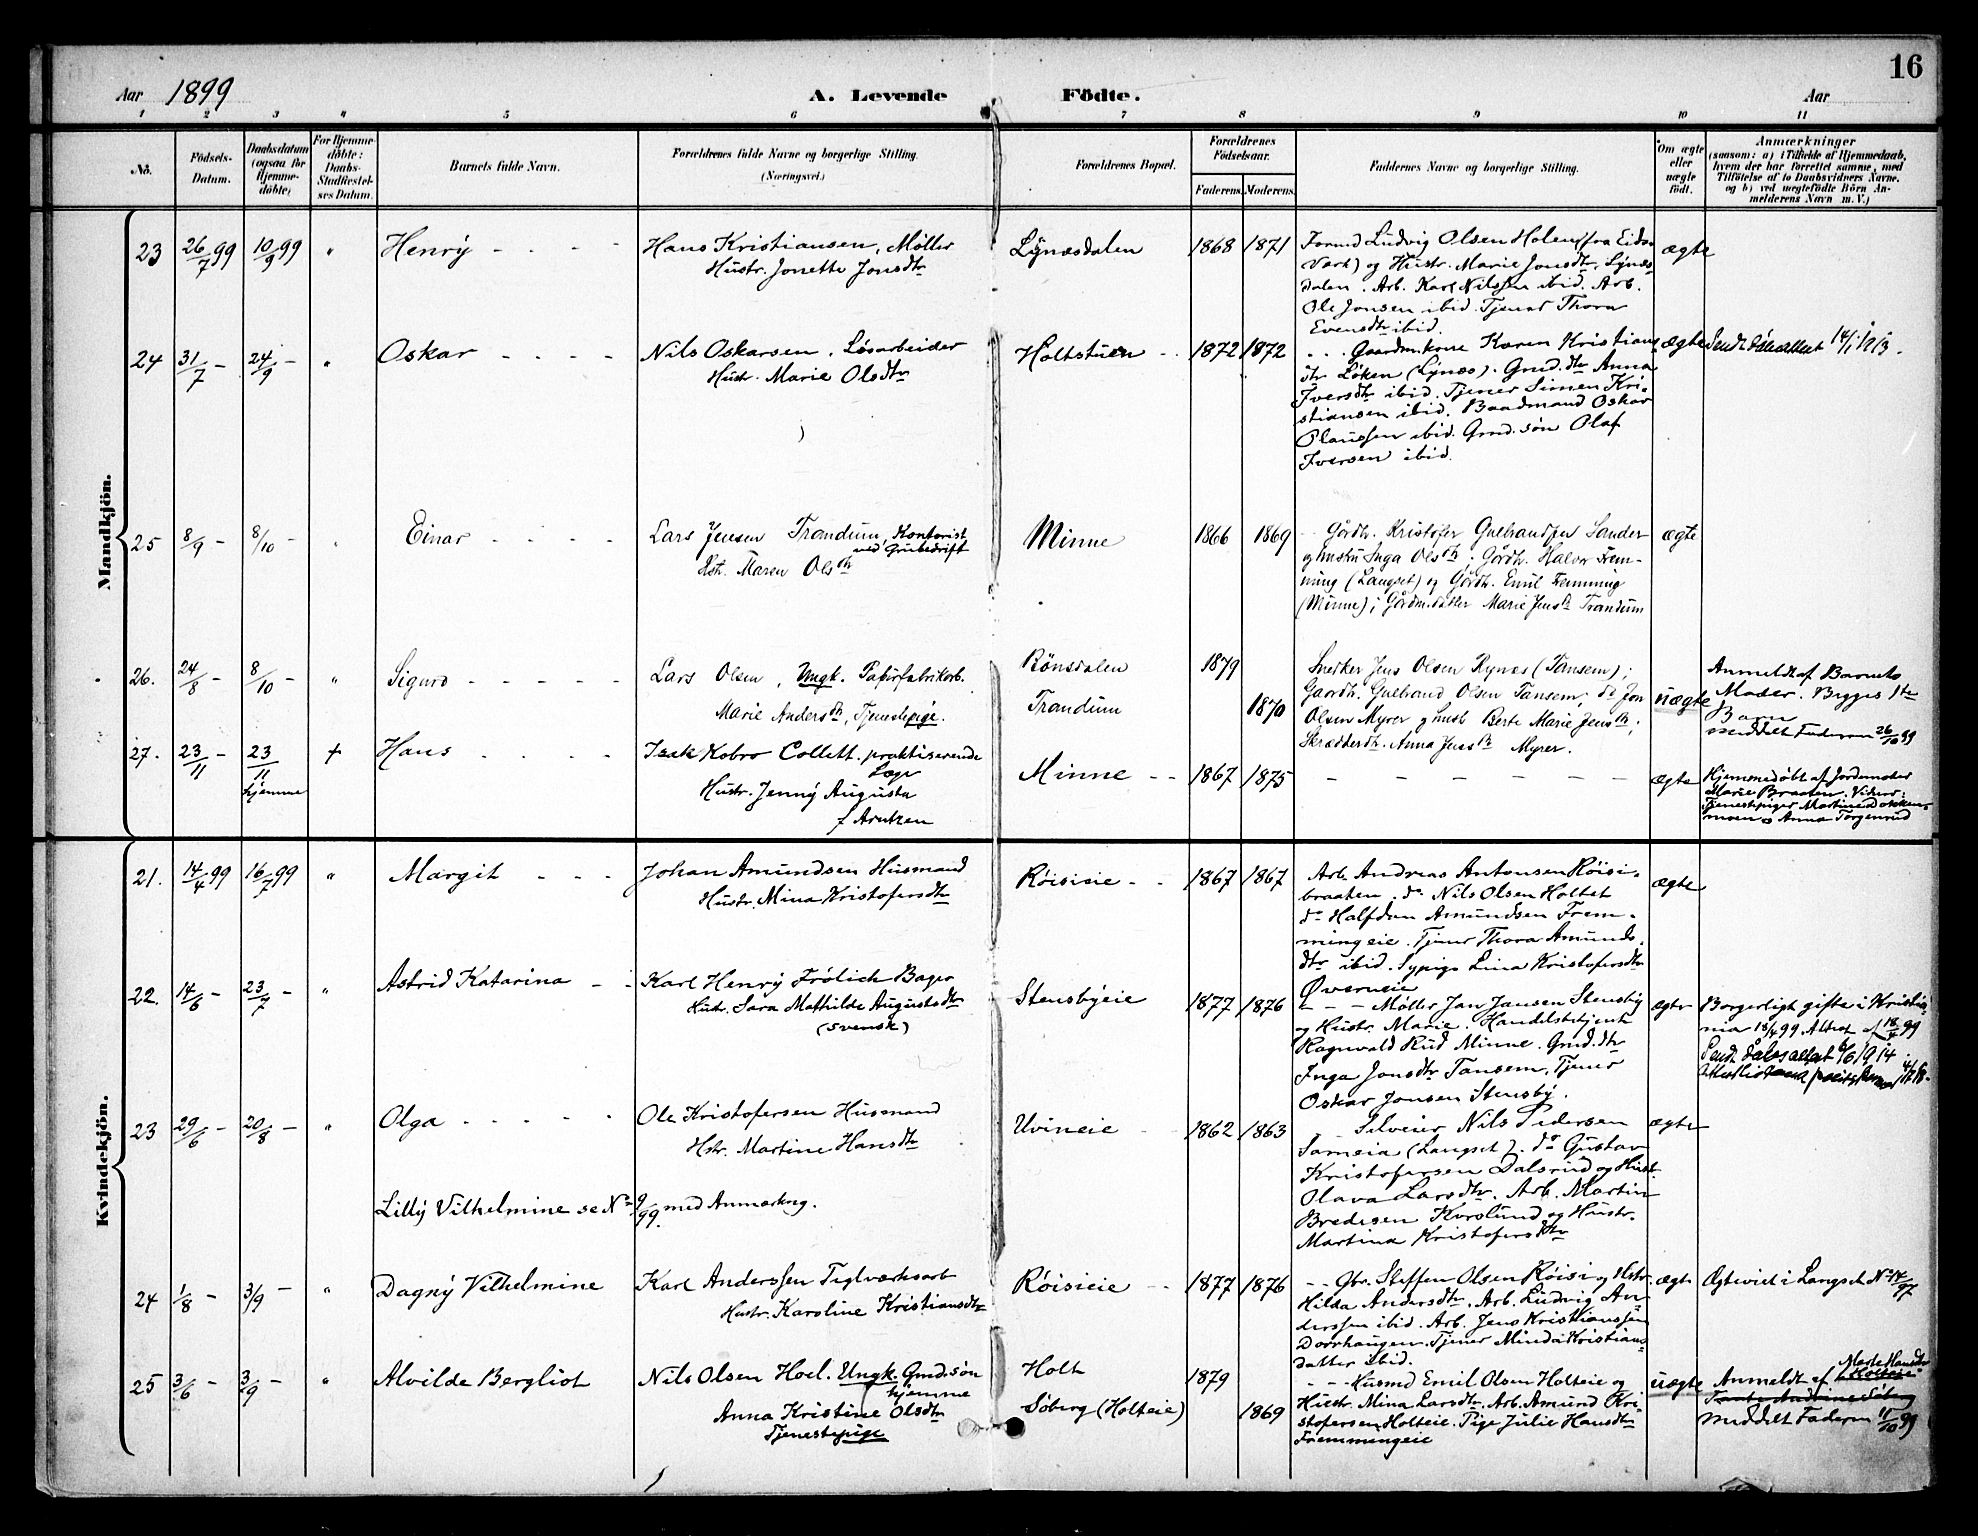 16
Aar 1899 A. Levende Födte. Aar
1 2 3 4 5 6 7 8 9 10 11
No.
Födsels-
Datum.
Daabsdatum
(ogsaa for
Hjemme-
döbte)
For Hjemme-
döbte:
Daabs-
Stadfæstel-
ses Datum.
Barnets fulde Navn.
Forældrenes fulde Navne og borgerlige Stilling.
(Næringsvei.)
Forældrenes Bopæl.
Forældrenes
Födselsaar.
Faderens. Moderens.
Faddernes Navne og borgerlige Stilling.
Om ægte
eller
uægte
födt.
Anmærkninger
(saasom: a) i Tilfælde af Hjemmedaab,
hvem der har forrettet samme, med
Tilföielse af to Daabsvidners Navne,
og b) ved uægtefödte Börn An-
melderens Navn m. V.)
Mandkjön.
23 26/7 99 10/9 99 " Henry - - - -
Hans Kristiansen, Møller
Hustr. Jonette Jonsdtr
Lynæsdalen 1868 1871
Formd Ludvig Olsen Holen (fra Eids
Værk) og Hustr. Marie Jonsdtr, Lynæs-
dalen. Arb. Karl Nilssen ibid. Arb.
Ole Jonsen ibid. Tjener Thora
Evensdtr ibid.
ægte
24 31/7 - 24/9 - " Oskar - - - -
Nils Oskarsen, Løsarbeider
Hustr. Marie Olsdtr
Holtstuen - - 1872 1872
- - - Gaardm.kone Karen Kristians
dtr Løken (Lynæs). Gmd.dtr Anna
Iversdtr ibid. Tjener Simen Kri-
stiansen ibid. Baadmand Oskar
Paulssen ibid. Gmd.søn Olaf
Iversen ibid.
ægte
Sendt dåbsattest 14/1 1913.
25 8/9 - 8/10 - " Einar - - - -
Lars Jensen Trandum, Kontorist
ved Grubedrift
Hst. Maren Olsdtr
Minne 1866 1869
Gårdbr. Kristofer Gulbrandsen Sander
og hustru Inga Olsdtr; Gårdbr. Halvor Frem-
ming (Langset) og Gårdbr. Emil Fremming
(Minne); Gårdm.datter Marie Jensdtr Trandum
ægte
26. 24/8 - 8/10 - " Sigurd - - - -
Lars Olsen, Ungk. Papirfabrikarb.
Marie Andersdtr, Tjenestepige.
Rönsdalen
Trandum
1879
1870
Snedker Jens Olsen Rynæs (Tansem);
Gaardbr. Gulbrand Olsen Tansem, do Jon
Olsen Myrer og hust. Berte Marie Jensdtr;
Skrædderdtr. Anna Jensdtr Myrer.
uægte
Anmeldt af Barnets
Moder. Begges 1ste
Barn
meddelt Faderen 26/10 99
27. 23/11 - 23/11 hjemme + Hans - - - -
Isak Kobro Collett. praktiserende
Læge
Hustr. Jenny Augusta
f Arntzen
Minne - - 1867 1875
- - - - - - -
ægte
Hjemmedøbt af Jordemoder
Marie Braaten. Vidner:
Tjenestepiger Martine Dokken-
moen og Anna Torgenrud
Kvindekjön.
21. 14/4 99 16/7 99 " Margit - - -
Johan Amundsen Husmand
Hustr. Mina Kristofersdtr
Röisieie - - 1867 1867
Arb. Andreas Antonsen Röisi-
braaten. do Nils Olsen Holtet
do Halfdan Amundsen Frem-
mingeie. Tjener Thora Amunds-
dtr ibid. Sypige Lina Kristofersdtr
Øverneie
ægte
22. 14/6 - 23/7 - " Astrid Katarina - -
Karl Henry Frölich Bager
Hstr. Sara Mathilde Augustsdtr
(svensk)
Stensbyeie 1877 1876
- - - Møller Jan Jansen Stensby
og Hustr. Marie. Handelsbetjent
Ragnvald Rud Minne. Gmd.dtr
Inga Jonsdtr Tansem, Tjener
Oskar Jonsen Stensby.
ægte
Borgerligt gifte i Kristia-
nia 18/4 99 Attest af 18/4 99
Sendt dåbsattest 6/6 1914
23 29/6 - 20/8 - " Olga - - - -
Ole Kristofersen Husmand
Hstr. Martine Hansdtr
Uvineie - 1862 1863
Selveier Nils Pedersen
Sameia (Langset). do Gustav
Kristofersen Dalsrud og Hust.
Olava Larsdtr. Arb. Martin
Bredesen Karslund og Hustr.
Martina Kristofersdtr
ægte
Lilly Vilhelmine se No 9/99 med Anmærkng.
24 1/8 - 3/9 - " Dagny Vilhelmine
Karl Anderssen Teglværksarb
Hustr. Karoline Kristiansdtr
Röisieie - - 1877 1876
- - Gbr. Steffen Olsen Röisi og Hstr.
Hilda Andersdtr. Arb. Ludvig An-
derssen ibid. Arb. Jens Kristianssen
Dorrhaugen. Tjener Minda Kristians-
datter ibid.
ægte
Ægteviet i Langset No 14/97
25 3/6 - 3/9 - " Alvilde Bergliot
Nils Olsen Hoel. Ungk. Gmd.søn
hjemme
Anna Kristine Olsdtr
Tjenestepige
Holt
Söberg (Holteie)
1879
1869
- - - Husmd Emil Olsen Holteie og
Hustr. Mina Larsdtr. Arb. Amund Kri-
stofersen Holteie. Pige Julie Hansdtr
Fremmingeie
uægte
Anmeldt af Marte Hansdtr
Holteie
meddelt Faderen 11/10 99